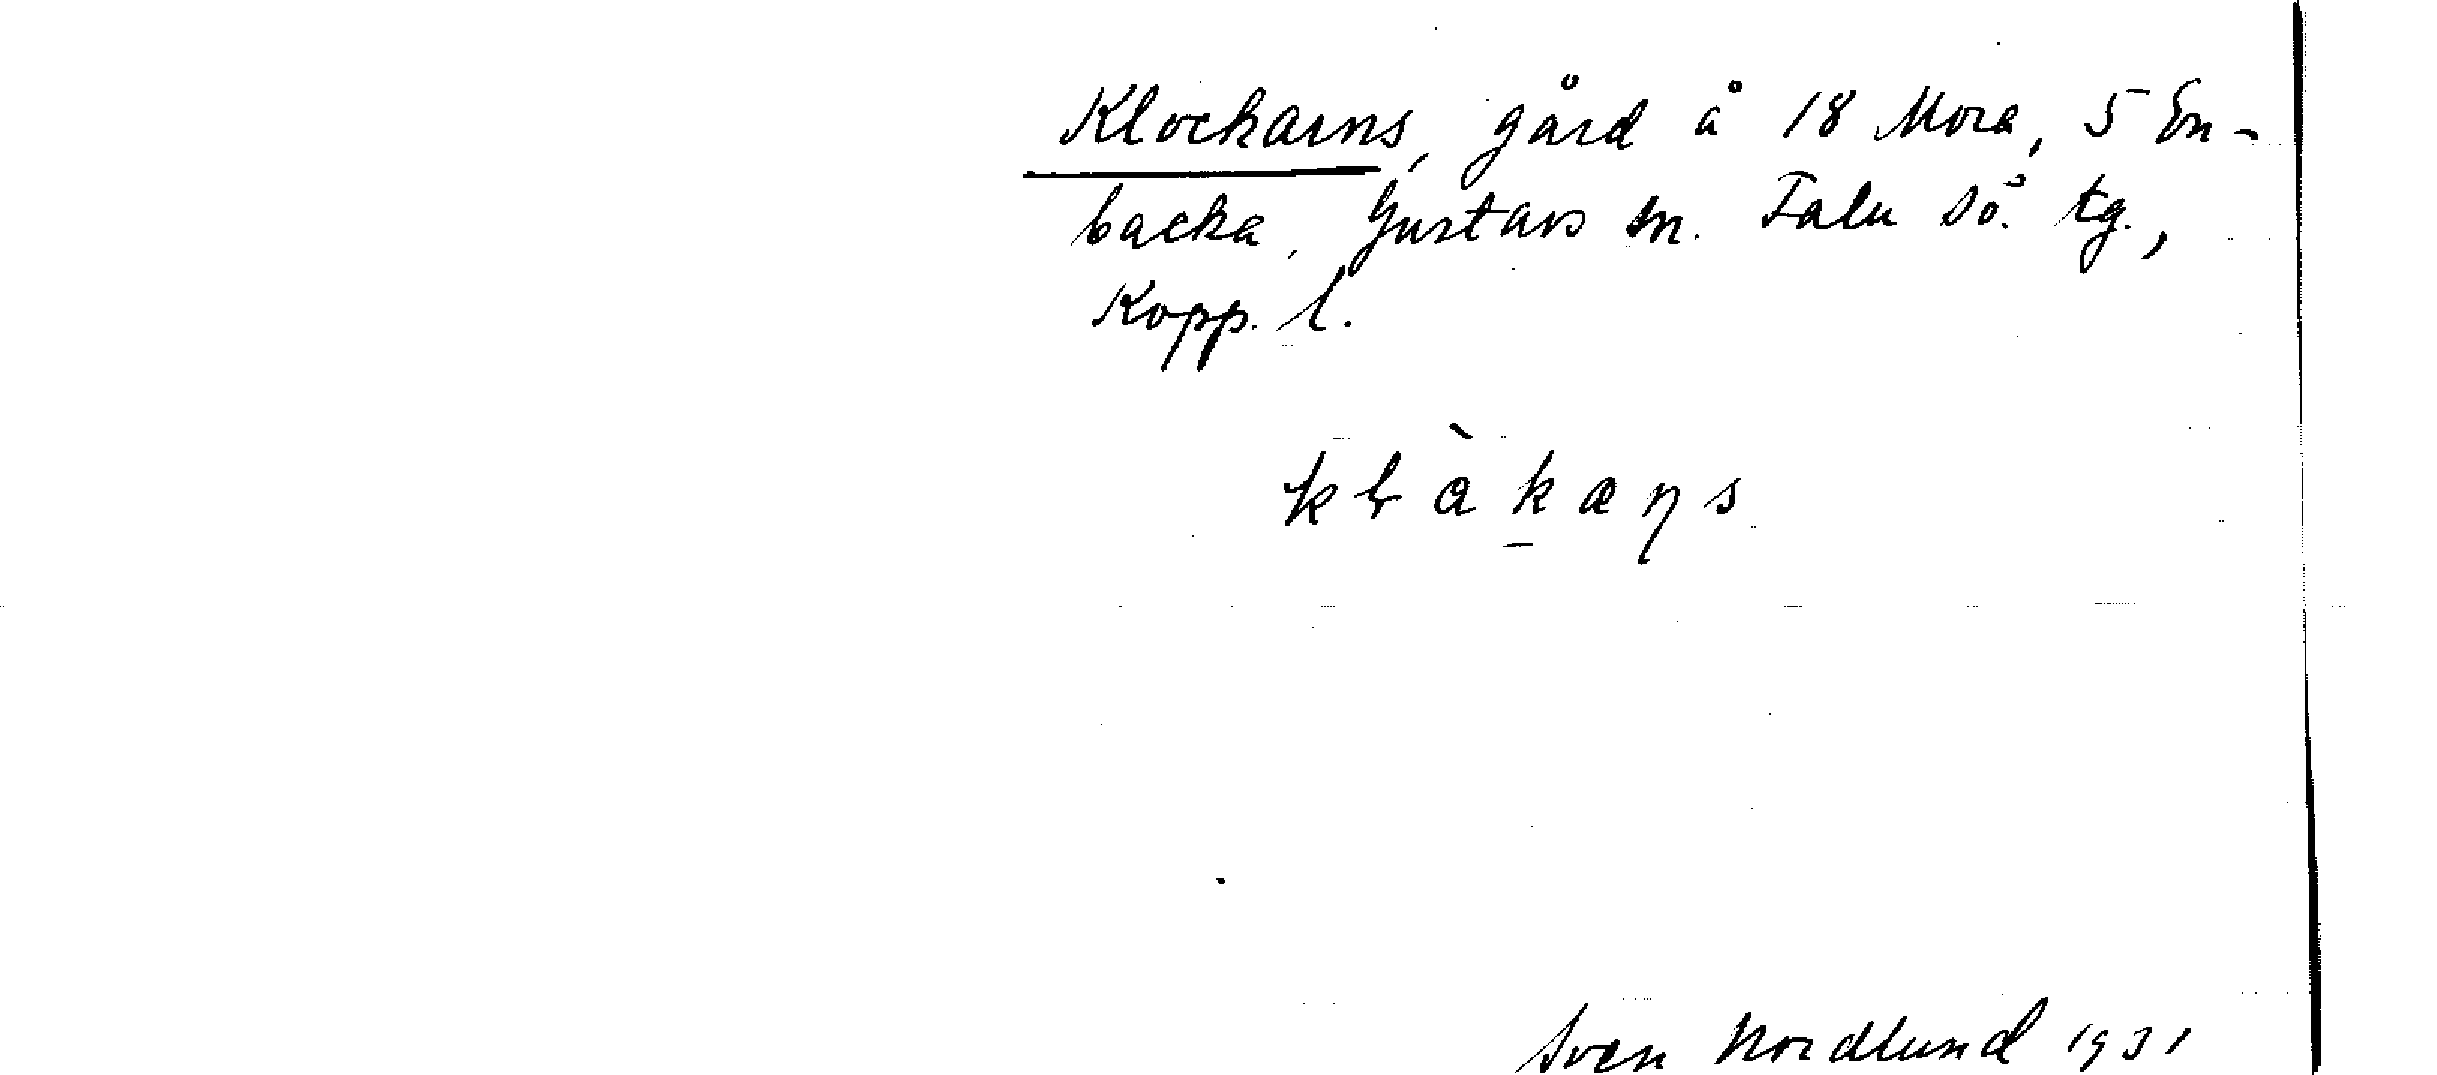 Klockarns, gård å 18 Mora, 5 En-
backa, Gustavs sn. Falu sö. tg.,
Kopp. l.
kɭàk̠æɳs
Sven Nordlund 1931